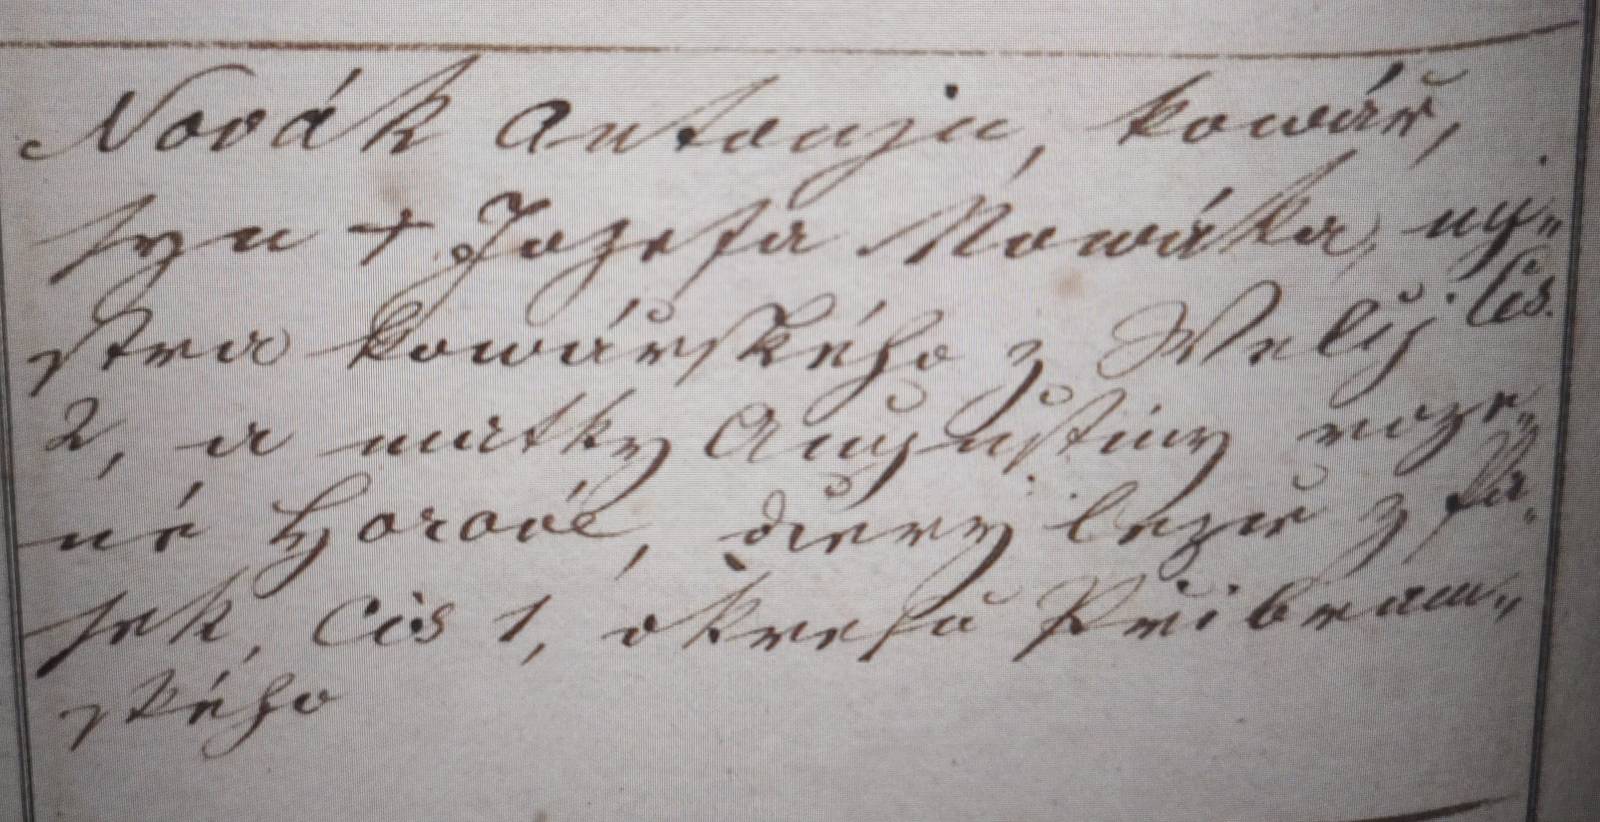 Novák Antonjn, kowář,
syn † Jozefa Nowáka, my-
stra kowářského z Welký Čis.
2, a matky Augustiny roze-
né Horové, dcery z Pa-
sek, Čis 1, okresu Přibram-
ského